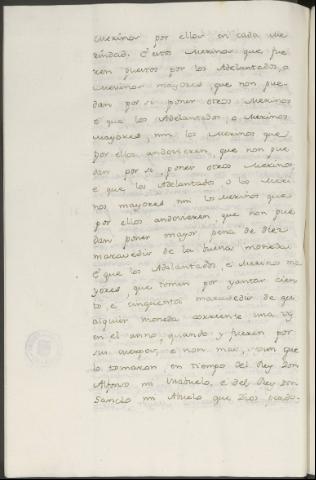 Merinos por ellos en cada me
rindad. E estos Merinos que fue
ren puestos por los Adelantados, o
Merinos mayores, que non pue
dan por si poner otros Merinos
e que los Adelantados, o Merinos
mayores, nin los Merinos que
por ellos andovieren, que non pue
dan por si, poner otros Merinos
e que los Adelantados o los Meri
nos mayores nin los Merinos que
por ellos andovieren, que non pue
dan poner mayor pena de diez
maravedis de la buena moneda.
E que los Adelantados, e Merinos ma
yores, que tomen por yantar cien
to e cinquenta maravedis de qu
alquier moneda corriente una vez
en el anno, quando y fueren por
sus cuerpos, e non mas, que
lo tomaron en tiempo del Rey Don
Alfonso mi Visabuelo, e del Rey Don
Sancho mi Abuelo que Dios perdo-